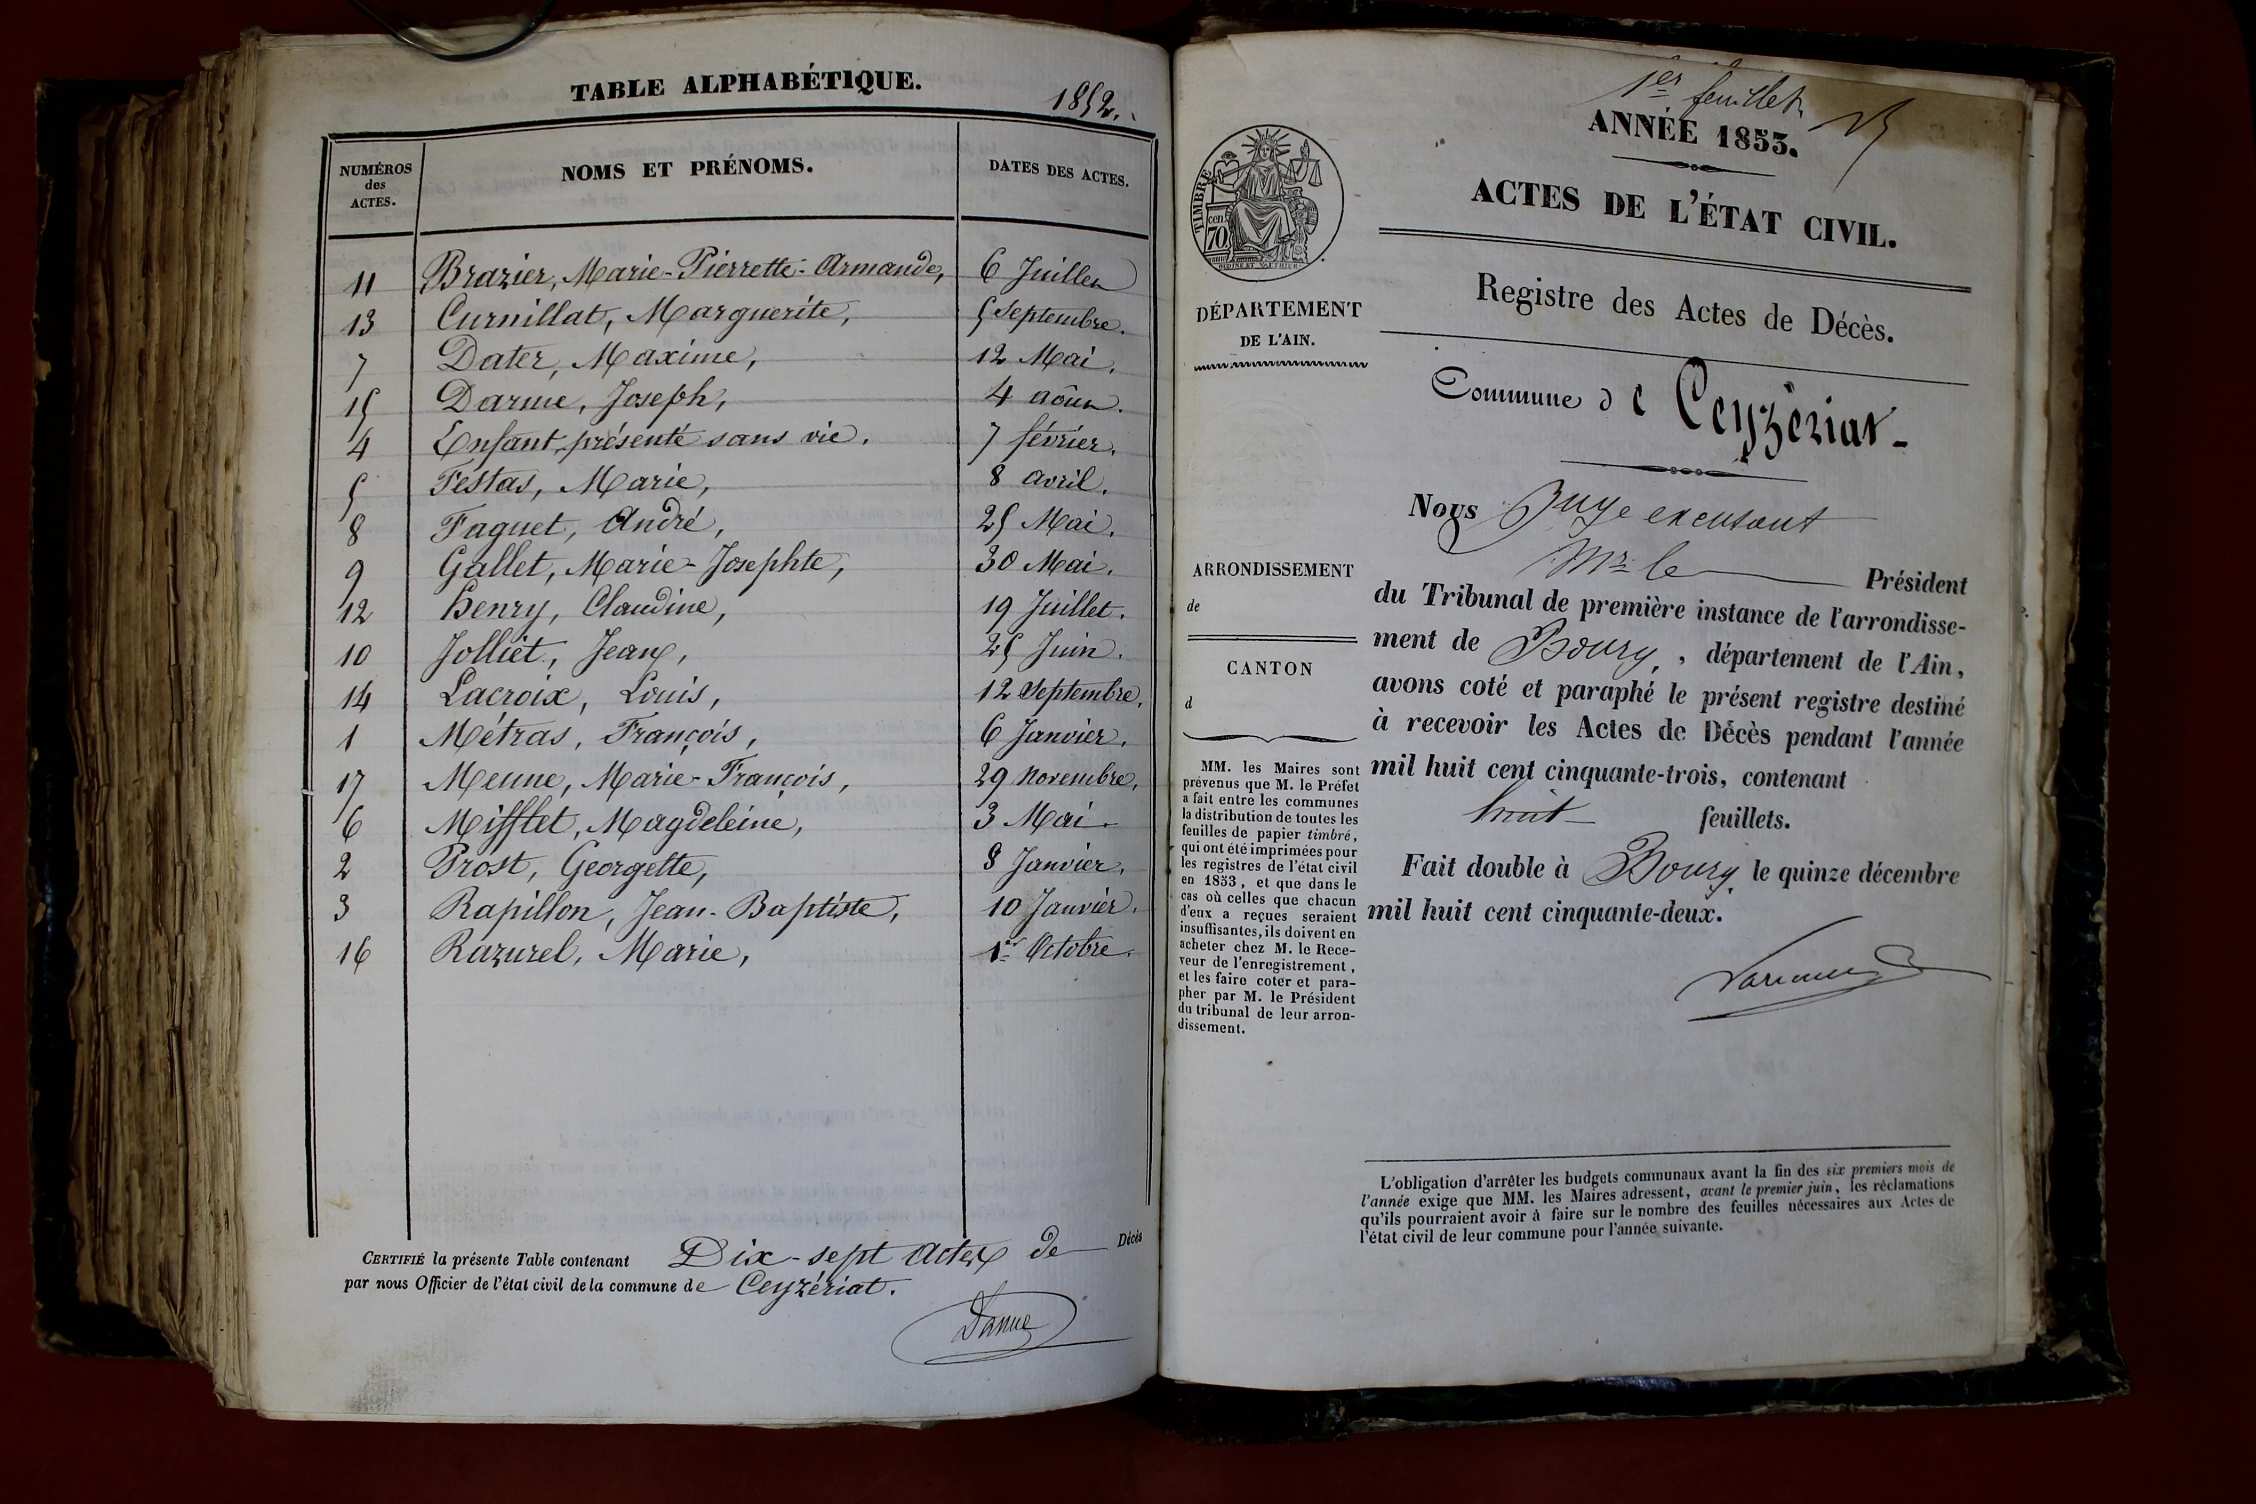 TABLE ALPHABÉTIQUE.
1852.
NUMÉROS des ACTES. NOMS ET PRÉNOMS. DATES DES ACTES.
11 Brazier, Marie-Pierrette-Armande, 6 Juillet
13 Curnillat, Marguerite, 5 Septembre.
7 Dater, Maxime, 12 Mai.
15 Darme, Joseph, 4 août.
4 Enfant présenté sans vie. 7 février.
5 Festas, Marie, 8 avril.
8 Faguet, André, 25 Mai.
9 Gallet, Marie-Josephte, 30 Mai.
12 henry, Claudine, 19 Juillet.
10 Jolliet, Jean, 25 Juin.
14 Lacroix, Louis, 12 Septembre.
1 Métras, François, 6 Janvier.
17 Meune, Marie-François, 29 novembre.
6 Mifflet, Magdeleine, 3 Mai.
2 Prost, Georgette, 8 Janvier.
3 Rapillon, Jean-Baptiste, 10 Janvier.
16 Razurel, Marie, 1er Octobre.
CERTIFIÉ la présente Table contenant Dix-sept actes de Décès
par nous Officier de l'état civil de la commune de Ceyzériat.
1er feuillet
ANNÉE 1853.
ACTES DE L'ÉTAT CIVIL.
Registre des Actes de Décès.
Commune de Ceyzériat
TIMBRE
70 cen
DÉPARTEMENT
DE L'AIN.
ARRONDISSEMENT
de
CANTON
d
MM. les Maires sont
prévenus que M. le Préfet
a fait entre les communes
la distribution de toutes les
feuilles de papier timbré,
qui ont été imprimées pour
les registres de l'état civil
en 1853, et que dans le
cas où celles que chacun
d'eux a reçues seraient
insuffisantes, ils doivent en
acheter chez M. le Rece-
veur de l'enregistrement,
et les faire coter et para-
pher par M. le Président
du tribunal de leur arron-
dissement.
Nous Juge excusant
Mr le Président
du Tribunal de première instance de l'arrondisse-
ment de Bourg, département de l'Ain,
avons coté et paraphé le présent registre destiné
à recevoir les Actes de Décès pendant l'année
mil huit cent cinquante-trois, contenant
huit feuillets.
Fait double à Bourg, le quinze décembre
mil huit cent cinquante-deux.
L'obligation d'arrêter les budgets communaux avant la fin des six premiers mois de
l'année exige que MM. les Maires adressent, avant le premier juin, les réclamations
qu'ils pourraient avoir à faire sur le nombre des feuilles nécessaires aux Actes de
l'état civil de leur commune pour l'année suivante.